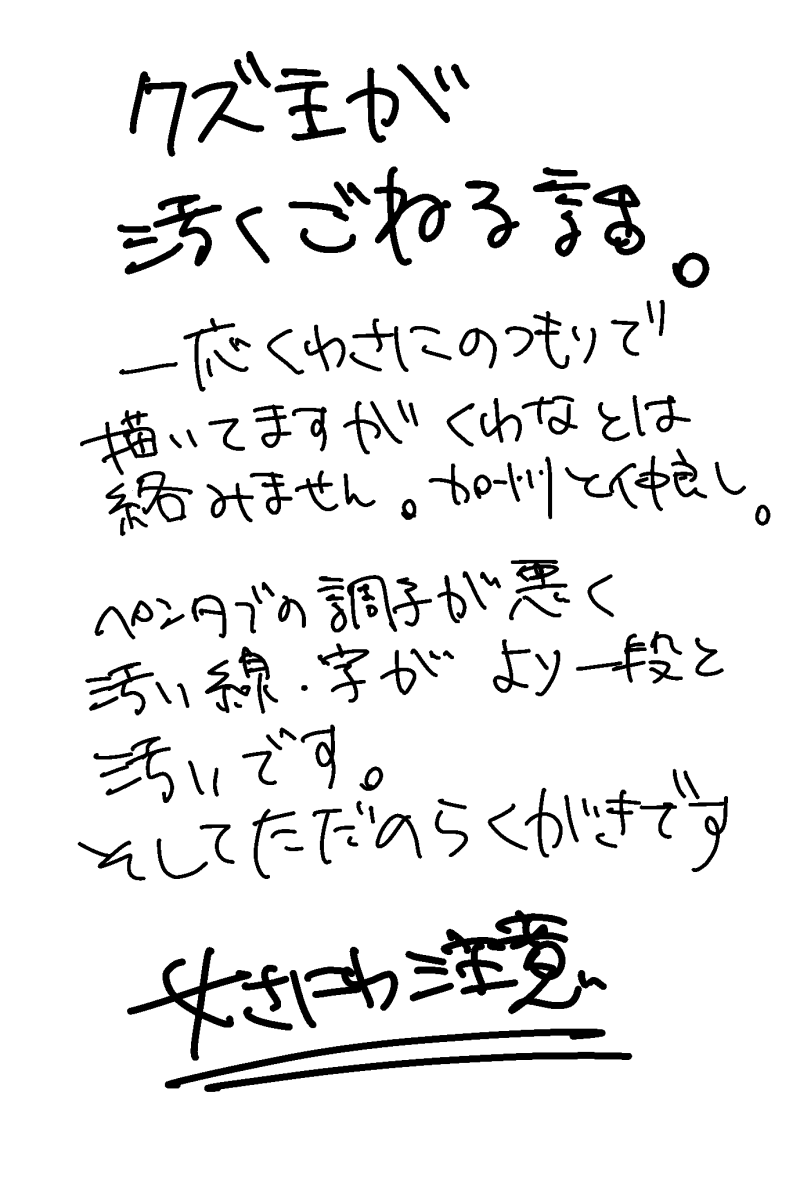 クズ主が
汚くごねる話。
一応くわさにのつもりで
描いてますがくわなとは
絡みません。加州と仲良し。
ペンタブの調子が悪く
汚い線・字がより一段と
汚いです。
そしてただのらくがきです
女さにわ注意